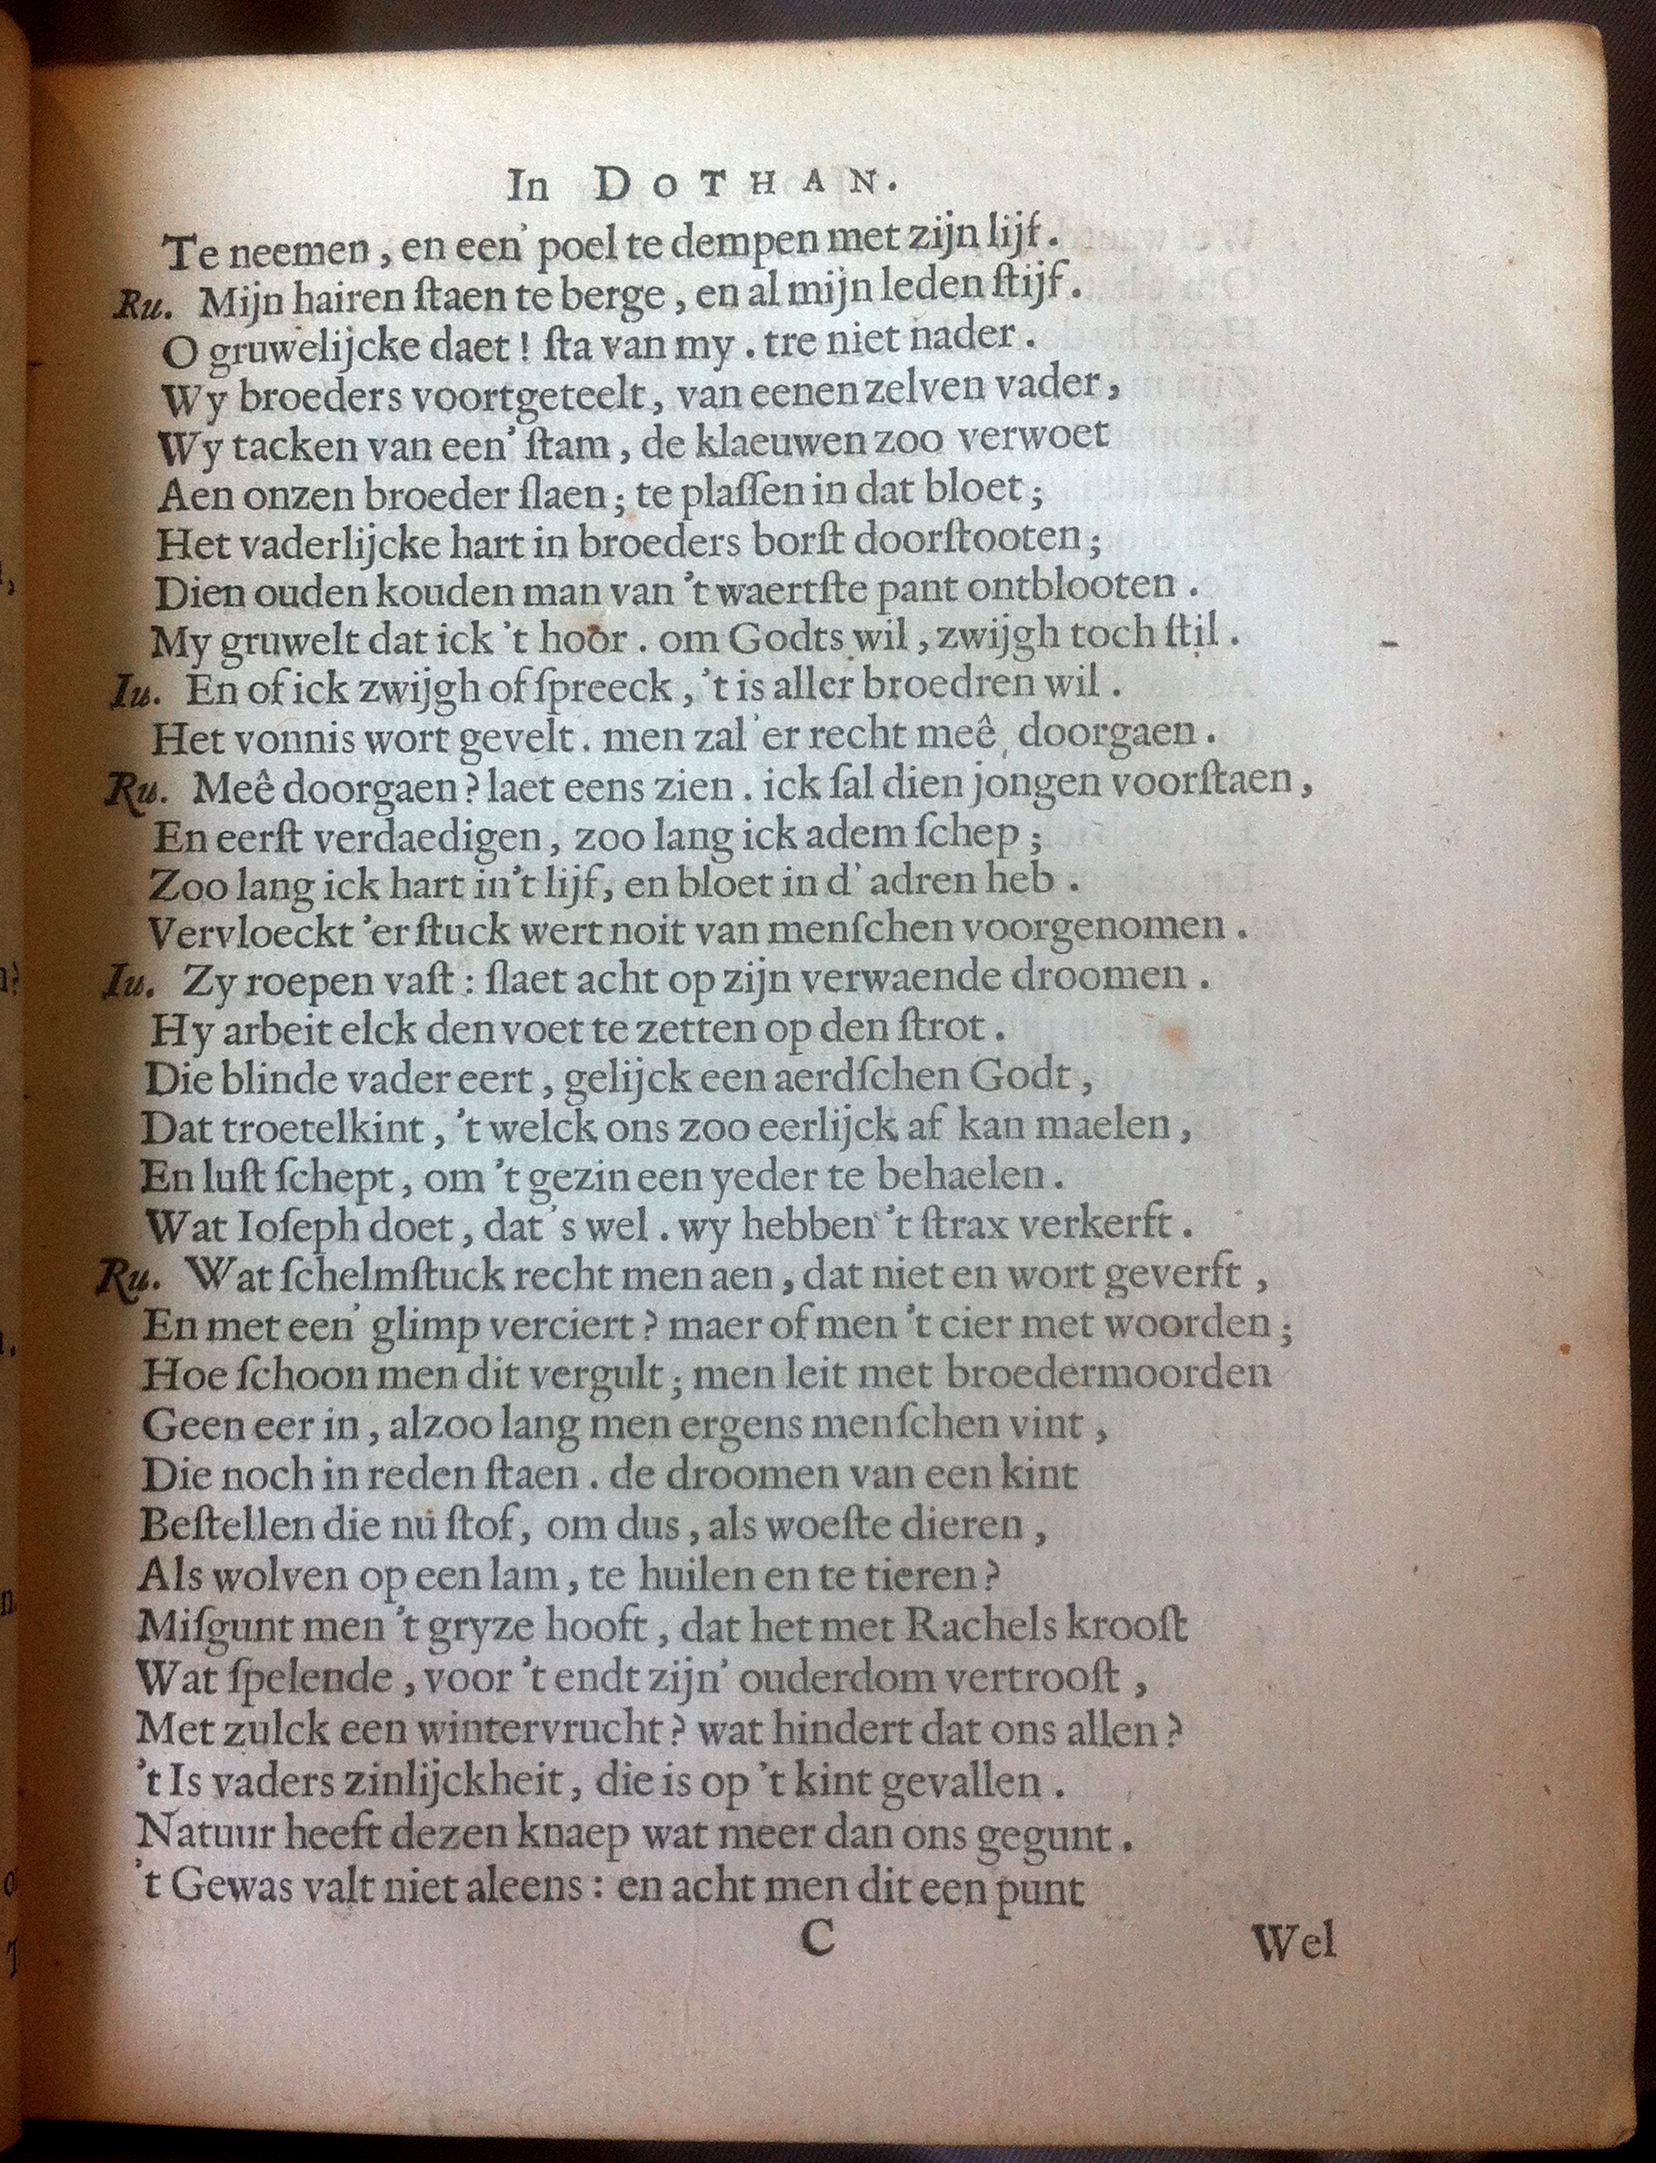 In DOTHAN.
Te neemen, en een' poel te dempen met zijn lijf.
Ru. Mijn hairen ſtaen te berge, en al mijn leden ſtijf.
O gruwelijcke daet! ſta van my. tre niet nader.
Wy broeders voortgeteelt, van eenen zelven vader,
Wy tacken van een' ſtam, de klaeuwen zoo verwoet
Aen onzen broeder ſlaen; te plaſſen in dat bloet;
Het vaderlijcke hart in broeders borſt doorſtooten;
Dien ouden kouden man van 't waertſte pant ontblooten.
My gruwelt dat ick 't hoor. om Godts wil, zwijgh toch ſtil.
Iu. En of ick zwijgh of ſpreeck, 't is aller broedren wil.
Het vonnis wort gevelt. men zal 'er recht meê doorgaen.
Ru. Meê doorgaen? laet eens zien. ick ſal dien jongen voorſtaen,
En eerſt verdaedigen, zoo lang ick adem ſchep;
Zoo lang ick hart in't lijf, en bloet in d' adren heb.
Vervloeckt 'er ſtuck wert noit van menſchen voorgenomen.
Iu. Zy roepen vaſt: ſlaet acht op zijn verwaende droomen.
Hy arbeit elck den voet te zetten op den ſtrot.
Die blinde vader eert, gelijck een aerdſchen Godt,
Dat troetelkint, 't welck ons zoo eerlijck af kan maelen,
En luſt ſchept, om 't gezin een yeder te behaelen.
Wat Ioſeph doet, dat 's wel. wy hebben 't ſtrax verkerft.
Ru. Wat ſchelmſtuck recht men aen, dat niet en wort geverft,
En met een' glimp verciert? maer of men 't cier met woorden;
Hoe ſchoon men dit vergult; men leit met broedermoorden
Geen eer in, alzoo lang men ergens menſchen vint,
Die noch in reden ſtaen. de droomen van een kint
Beſtellen die nu ſtof, om dus, als woeſte dieren,
Als wolven op een lam, te huilen en te tieren?
Miſgunt men 't gryze hooft, dat het met Rachels krooſt
Wat ſpelende, voor 't endt zijn' ouderdom vertrooſt,
Met zulck een wintervrucht? wat hindert dat ons allen?
't Is vaders zinlijckheit, die is op 't kint gevallen.
Natuur heeft dezen knaep wat meer dan ons gegunt.
't Gewas valt niet aleens: en acht men dit een punt
C Wel